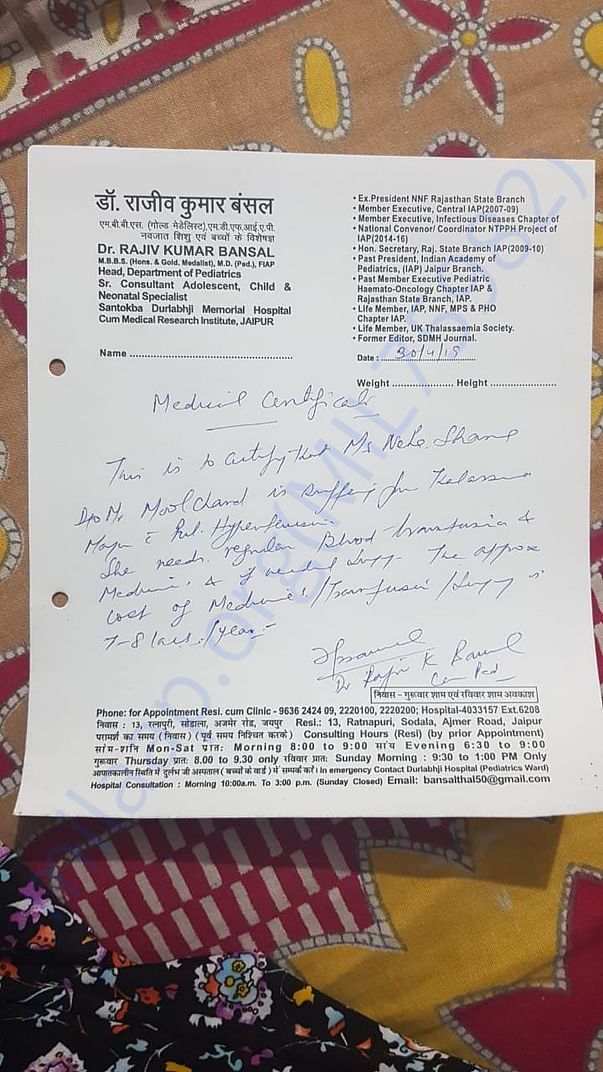 डॉ. राजीव कुमार बंसल
एम.बी.बी.एस. (गोल्ड मेडेलिस्ट),एम.डी.एफ.आई.ए.पी.
नवजात शिशु एवं बच्चों के विशेषज्ञ
Dr. RAJIV KUMAR BANSAL
M.B.B.S. (Hons. & Gold. Medalist), M.D. (Ped.), FIAP
Head, Department of Pediatrics
Sr. Consultant Adolescent, Child &
Neonatal Specialist
Santokba Durlabhji Memorial Hospital
Cum Medical Research Institute, JAIPUR
Name
• Ex.President NNF Rajasthan State Branch
• Member Executive, Central IAP(2007-09)
• Member Executive, Infectious Diseases Chapter of
• National Convenor/ Coordinator NTPPH Project of
IAP(2014-16)
• Hon. Secretary, Raj. State Branch IAP(2009-10)
• Past President, Indian Academy of
Pediatrics, (IAP) Jaipur Branch.
• Past Member Executive Pediatric
Haemato-Oncology Chapter IAP &
Rajasthan State Branch, IAP.
• Life Member, IAP, NNF, MPS & PHO
Chapter IAP.
• Life Member, UK Thalassaemia Society.
• Former Editor, SDMH Journal.
Date : 30/4/19
Weight Height
Medical Certificate
This is to certify that Ms Neha
D/o Mr Moolchand is suffering
Major
She needs regular Blood transfusion &
Medicine, & if needed The approx
cost of Medicines/Transfusion/
7-8 lacs/year
Dr Rajiv K Bansal
निवास - गुरूवार शाम एवं रविवार शाम अवकाश
Phone: for Appointment Resi. cum Clinic - 9636 2424 09, 2220100, 2220200; Hospital-4033157 Ext.6208
निवास : 13, रत्नापुरी, सोडाला, अजमेर रोड, जयपुर Resi.: 13, Ratnapuri, Sodala, Ajmer Road, Jaipur
परामर्श का समय (निवास) (पूर्व समय निश्चित करके) Consulting Hours (Resi) (by prior Appointment)
Mon-Sat प्रात: Morning 8:00 to 9:00 सांय Evening 6:30 to 9:00
गुरूवार Thursday प्रात: 8.00 to 9.30 only रविवार प्रात: Sunday Morning : 9:30 to 1:00 PM Only
आपातकालीन स्थिति में दुर्लभ जी अस्पताल (बच्चों के वार्ड) में सम्पर्क करें। In emergency Contact Durlabhji Hospital (Pediatrics Ward)
Hospital Consultation : Morning 10:00a.m. To 3:00 p.m. (Sunday Closed) Email: bansalthal50@gmail.com